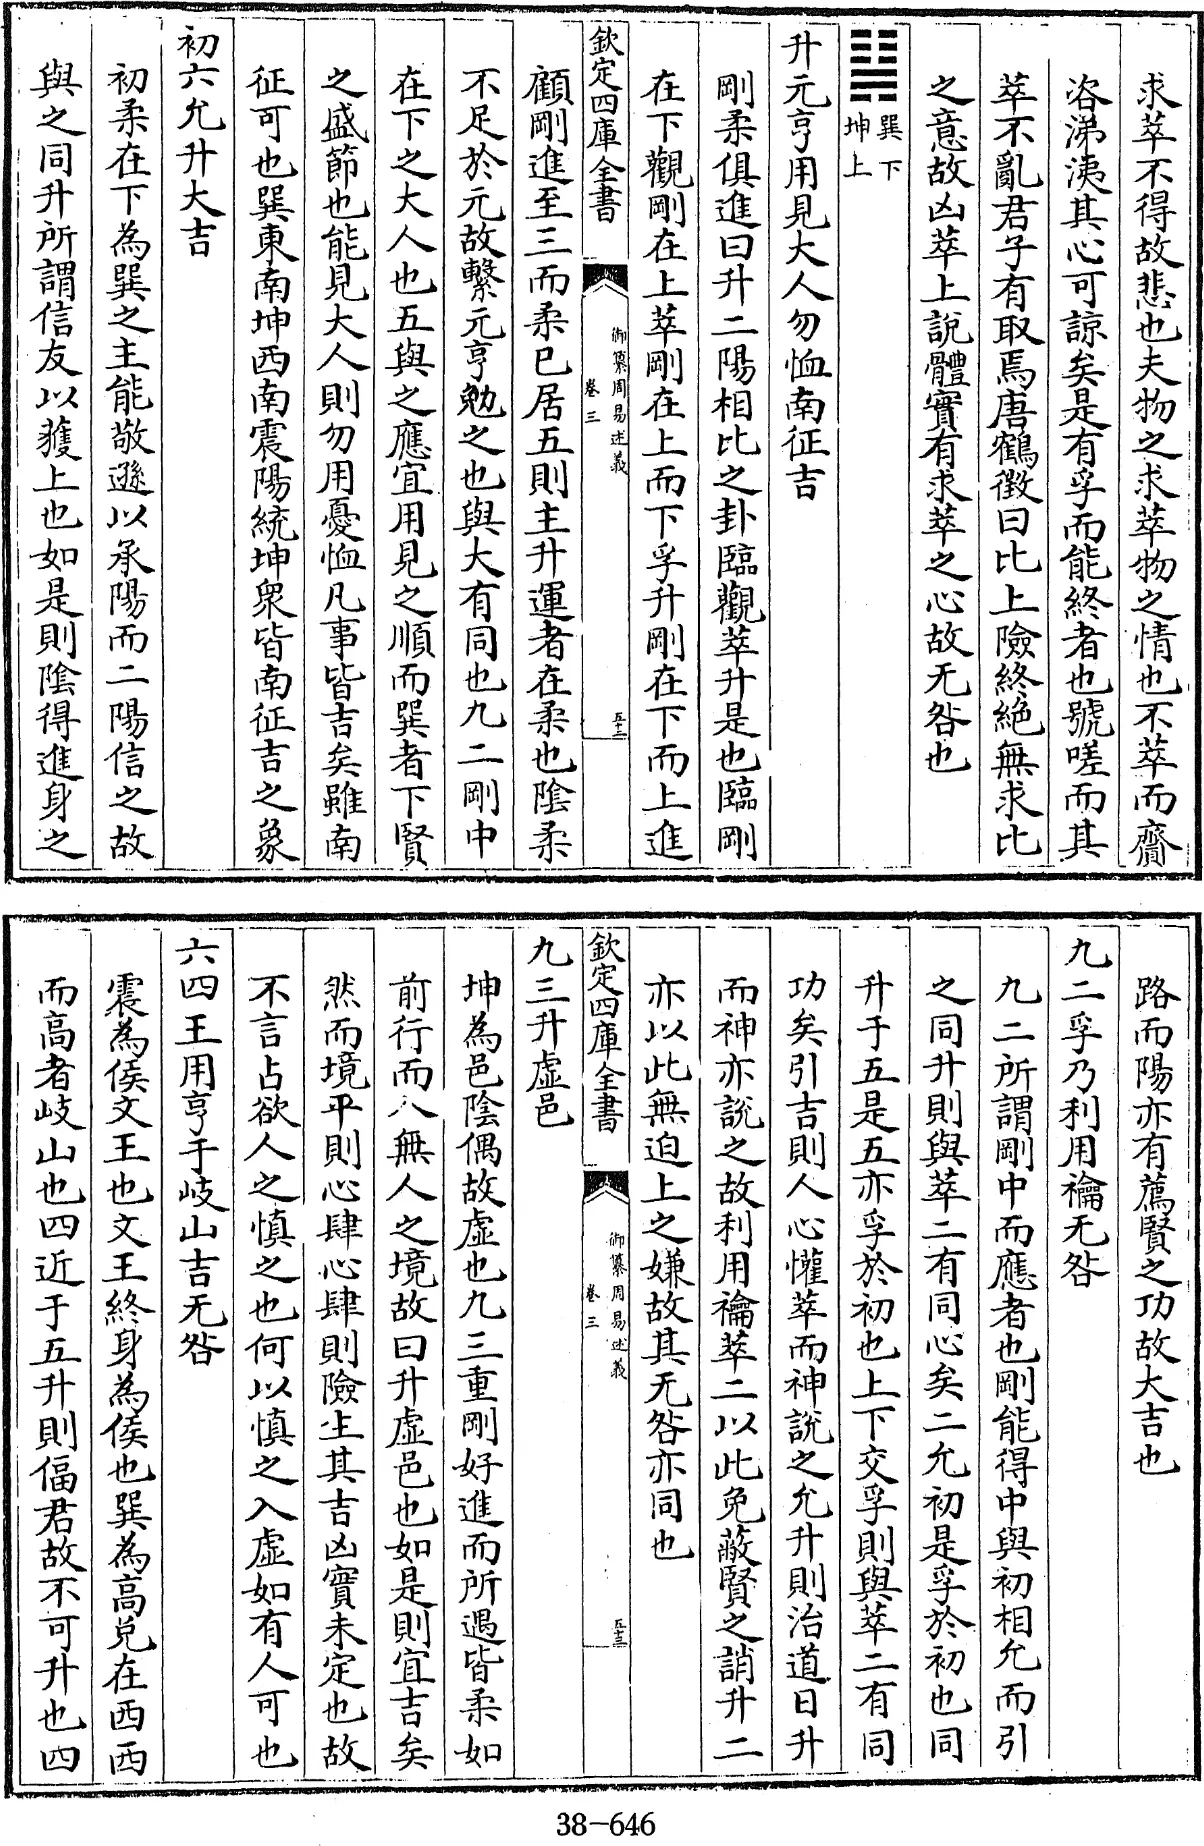 求萃不得故悲也夫物之求萃物之情也不萃而齎
咨涕洟其心可諒矣是有孚而能終者也號嗟而其
萃不亂君子有取焉唐鶴徵曰比上險終絶無求比
之意故凶萃上說體實有求萃之心故无咎也
巽下
坤上
升元亨用見大人勿恤南征吉
剛柔俱進曰升二陽相比之卦臨觀萃升是也臨剛
在下觀剛在上萃剛在上而下孚升剛在下而上進
欽定四庫全書
御纂周易述義
卷三
五十二
顧剛進至三而柔已居五則主升運者在柔也陰柔
不足於元故繫元亨勉之也與大有同也九二剛中
在下之大人也五與之應宜用見之順而巽者下賢
之盛節也能見大人則勿用憂恤凡事皆吉矣雖南
征可也巽東南坤西南震陽統坤衆皆南征吉之象
初六允升大吉
初柔在下為巽之主能敬遜以承陽而二陽信之故
與之同升所謂信友以獲上也如是則陰得進身之
路而陽亦有薦賢之功故大吉也
九二孚乃利用禴无咎
九二所謂剛中而應者也剛能得中與初相允而引
之同升則與萃二有同心矣二允初是孚於初也同
升于五是五亦孚於初也上下交孚則與萃二有同
功矣引吉則人心懽萃而神說之允升則治道日升
而神亦說之故利用禴萃二以此免蔽賢之誚升二
亦以此無迫上之嫌故其无咎亦同也
欽定四庫全書
御纂周易述義
卷三
五十三
九三升虛邑
坤為邑陰偶故虛也九三重剛好進而所遇皆柔如
前行而入無人之境故曰升虛邑也如是則宜吉矣
然而境平則心肆心肆則險生其吉凶實未定也故
不言占欲人之慎之也何以慎之入虛如有人可也
六四王用亨于岐山吉无咎
震為侯文王也文王終身為侯也巽為高兌在西西
而高者岐山也四近于五升則偪君故不可升也四
38-646